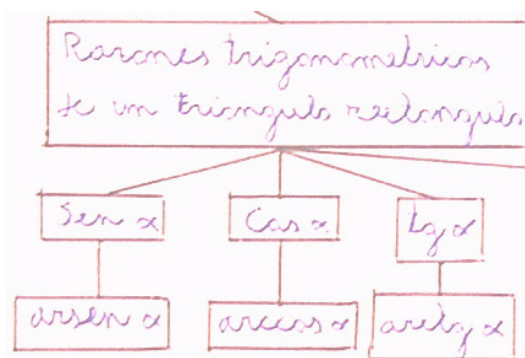 Razones trigonometricas
de un triangulo rectangulo
Sen α
Cos α
tg α
arsen α
arccos α
arctg α